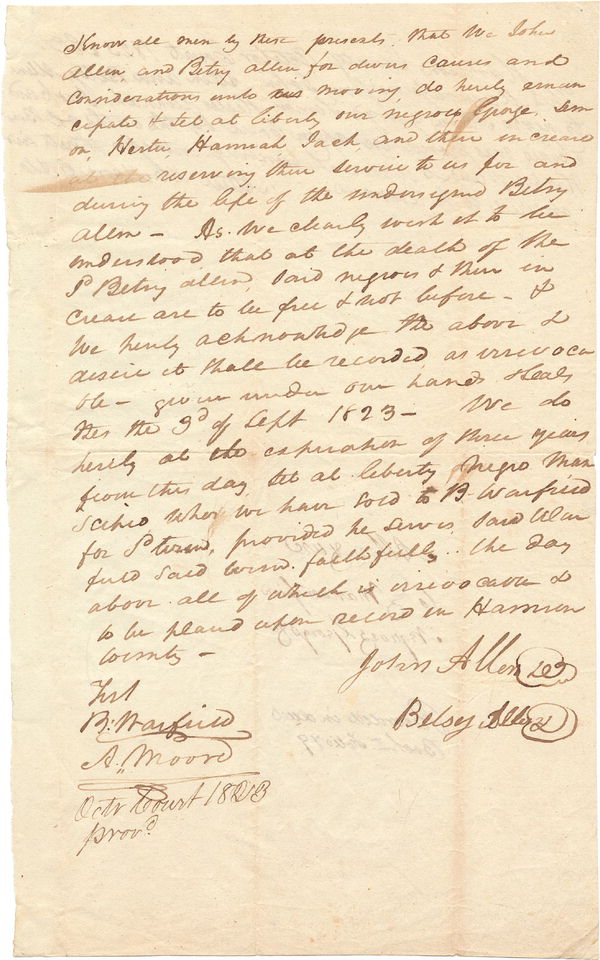 Know all men by these presents, that We John
Allen, and Betsy Allen, for divers causes and
Considerations unto us moving, do hereby eman
cipate & set at liberty our negroes George, Sim
on, Hester, Hannah Jack, and their increase
reserving their service to us for and
during the life of the undersigned Betsy
Allen - As We clearly wish it to be
understood that at the death of the
sd Betsy Allen, said negroes & their in
crease are to be free & not before - &
We hereby acknowledge the above &
desire it shall be recorded, as irrevoca
ble - given under our hands & seals
this the 3d of Sept 1823 - We do
hereby at the expiration of three years
from this day set at liberty Negro Man
Scipio, whom we have sold to B. Warfield
for sd term, provided he serves said War
field said term faithfully. the day
above. all of which is irrevocable &
to be placed upon record in Harrison
County -
John Allen
Betsy Allen
Test
B. Warfield
A. Moore
Octr Court 1823
provd